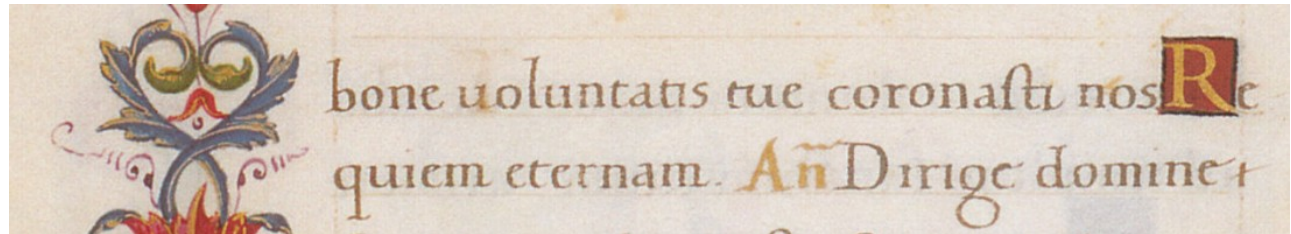 bone uoluntatis tue coronasti nos Re
quiem eternam. An̄ Dirige domine